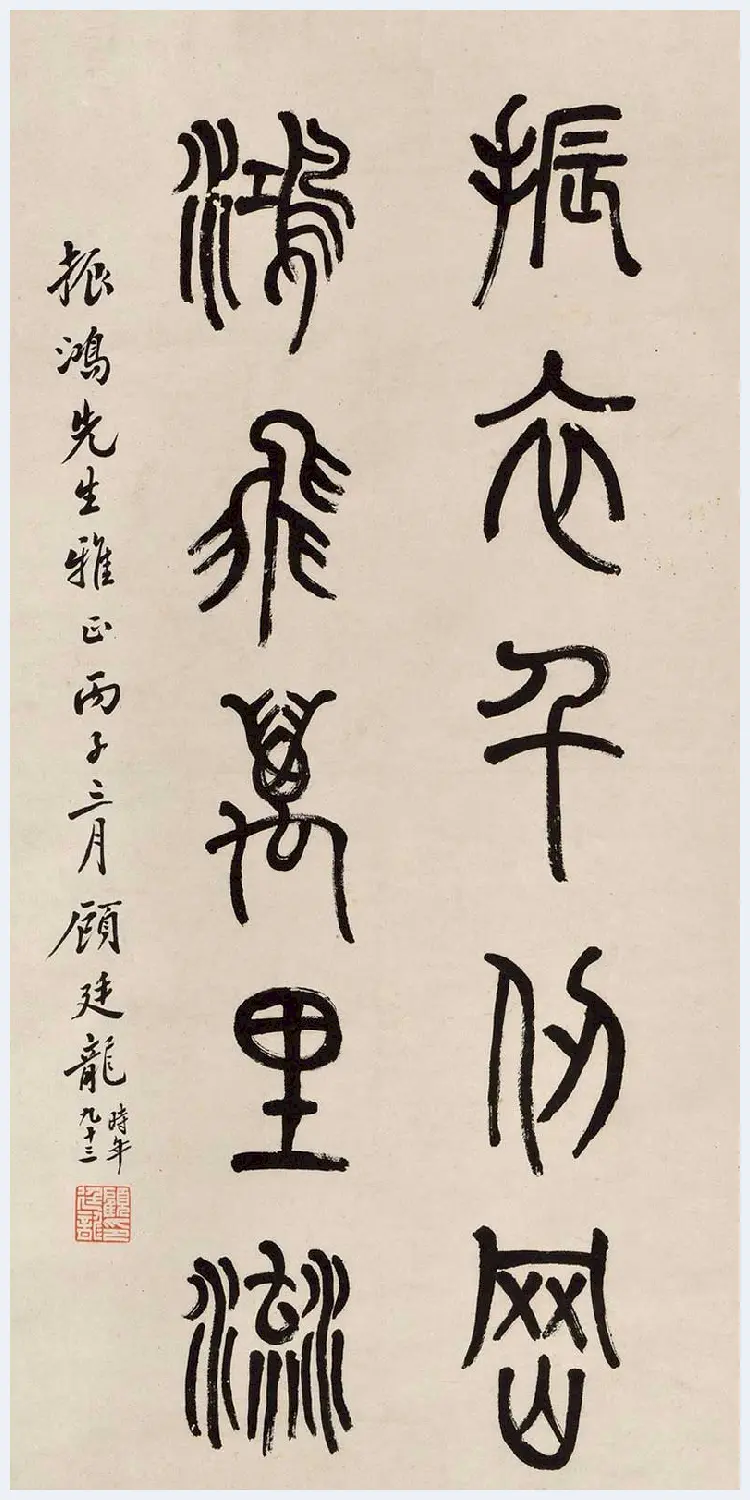 振衣千仞岡
鴻飛萬里流
振鴻先生雅正丙子三月顧廷龍
時年
九十三
顧廷龍印